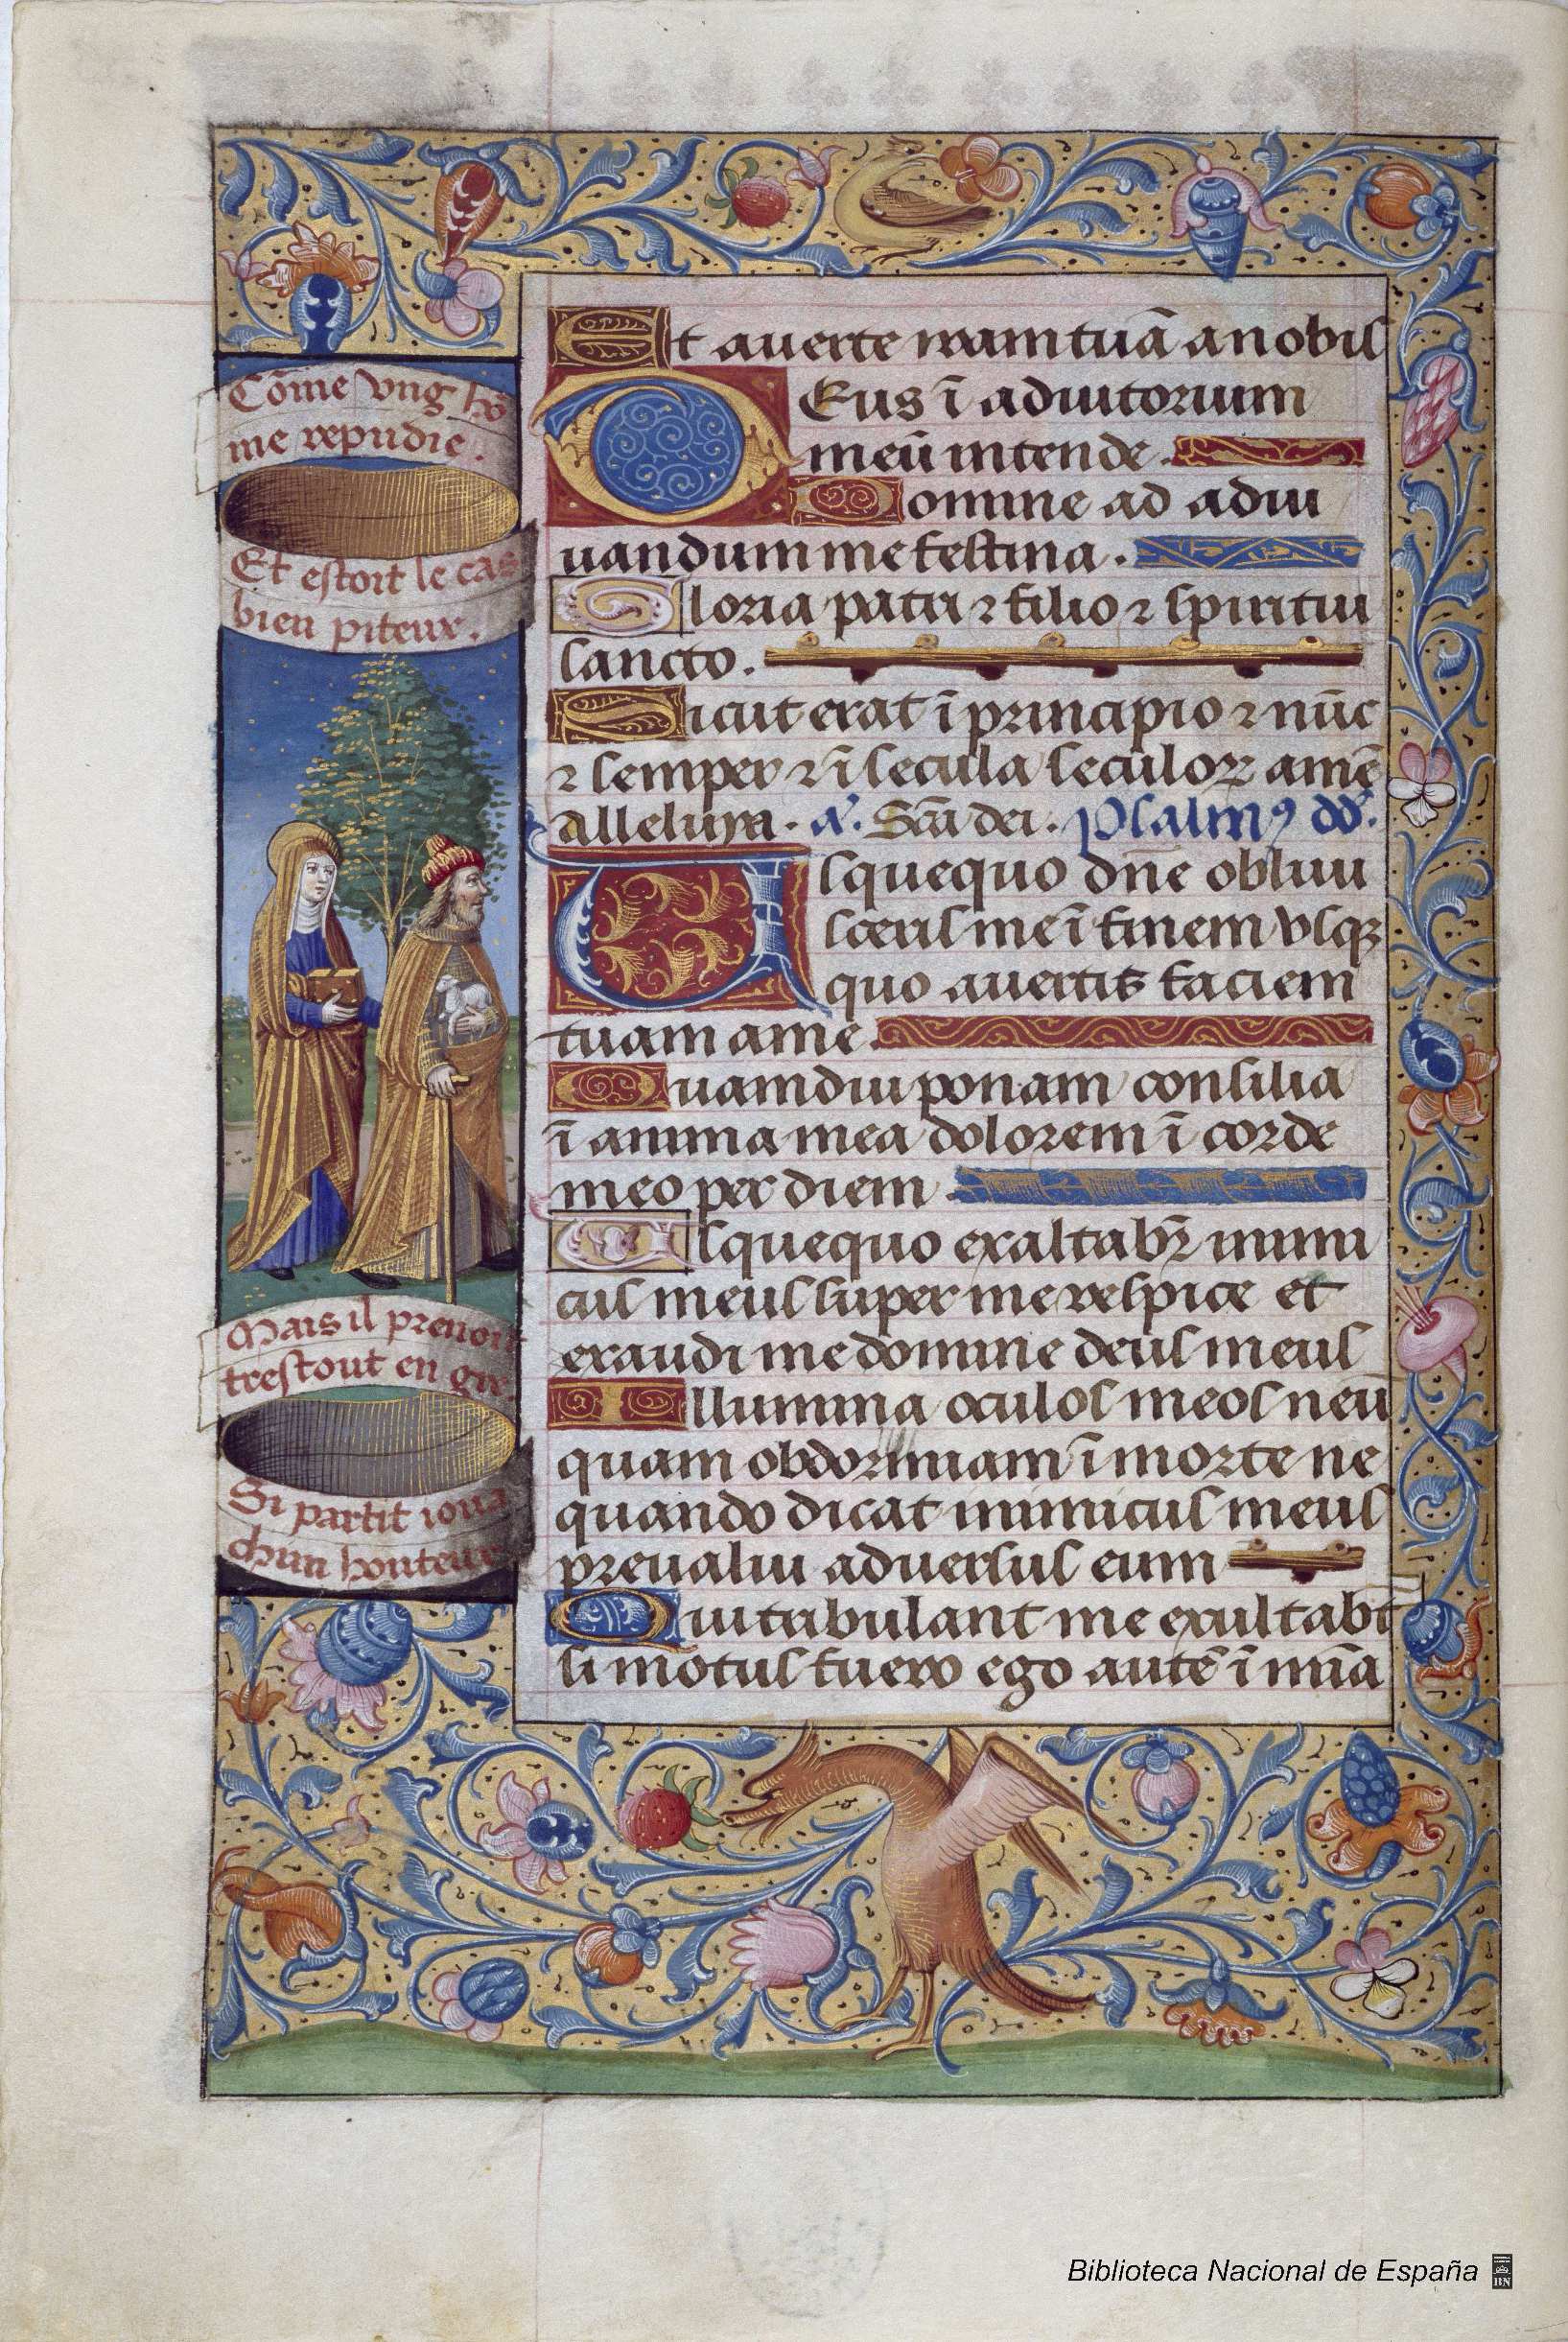 Cõme vng hõ
me repudie.
Et estoit le cas
bien piteux.
Mais il prenoit
trestout en gre.
Si partit ioua
chim honteux
Et auerte iram tuã a nobis
DEus ĩ adiutorium
meũ intende.
Domine ad adiu
uandum me festina.
Gloria patri ⁊ filio ⁊ spiritui
sancto.
Sicut erat ĩ principio ⁊ nũc
⁊ semper ⁊ ĩ secula seculoꝝ amẽ
alleluya. a͛. Scã dei. Psalmꝰ dd̃.
Usquequo dñe obliui
sceris me ĩ finem vsqꝫ
quo auertis faciem
tuam a me.
Quamdiu ponam consilia
ĩ anima mea dolorem ĩ corde
meo per diem
Usquequo exaltabr̃ inimi
cus meus super me respice et
exaudi me domine deus meus
Illumina oculos meos neũ
quam obdormiam ĩ morte ne
quando dicat inimicus meus
preualui aduersus eum
Qui tribulant me exultabt̃
si motus fuero ego autẽ ĩ mĩa
Biblioteca Nacional de España
BN